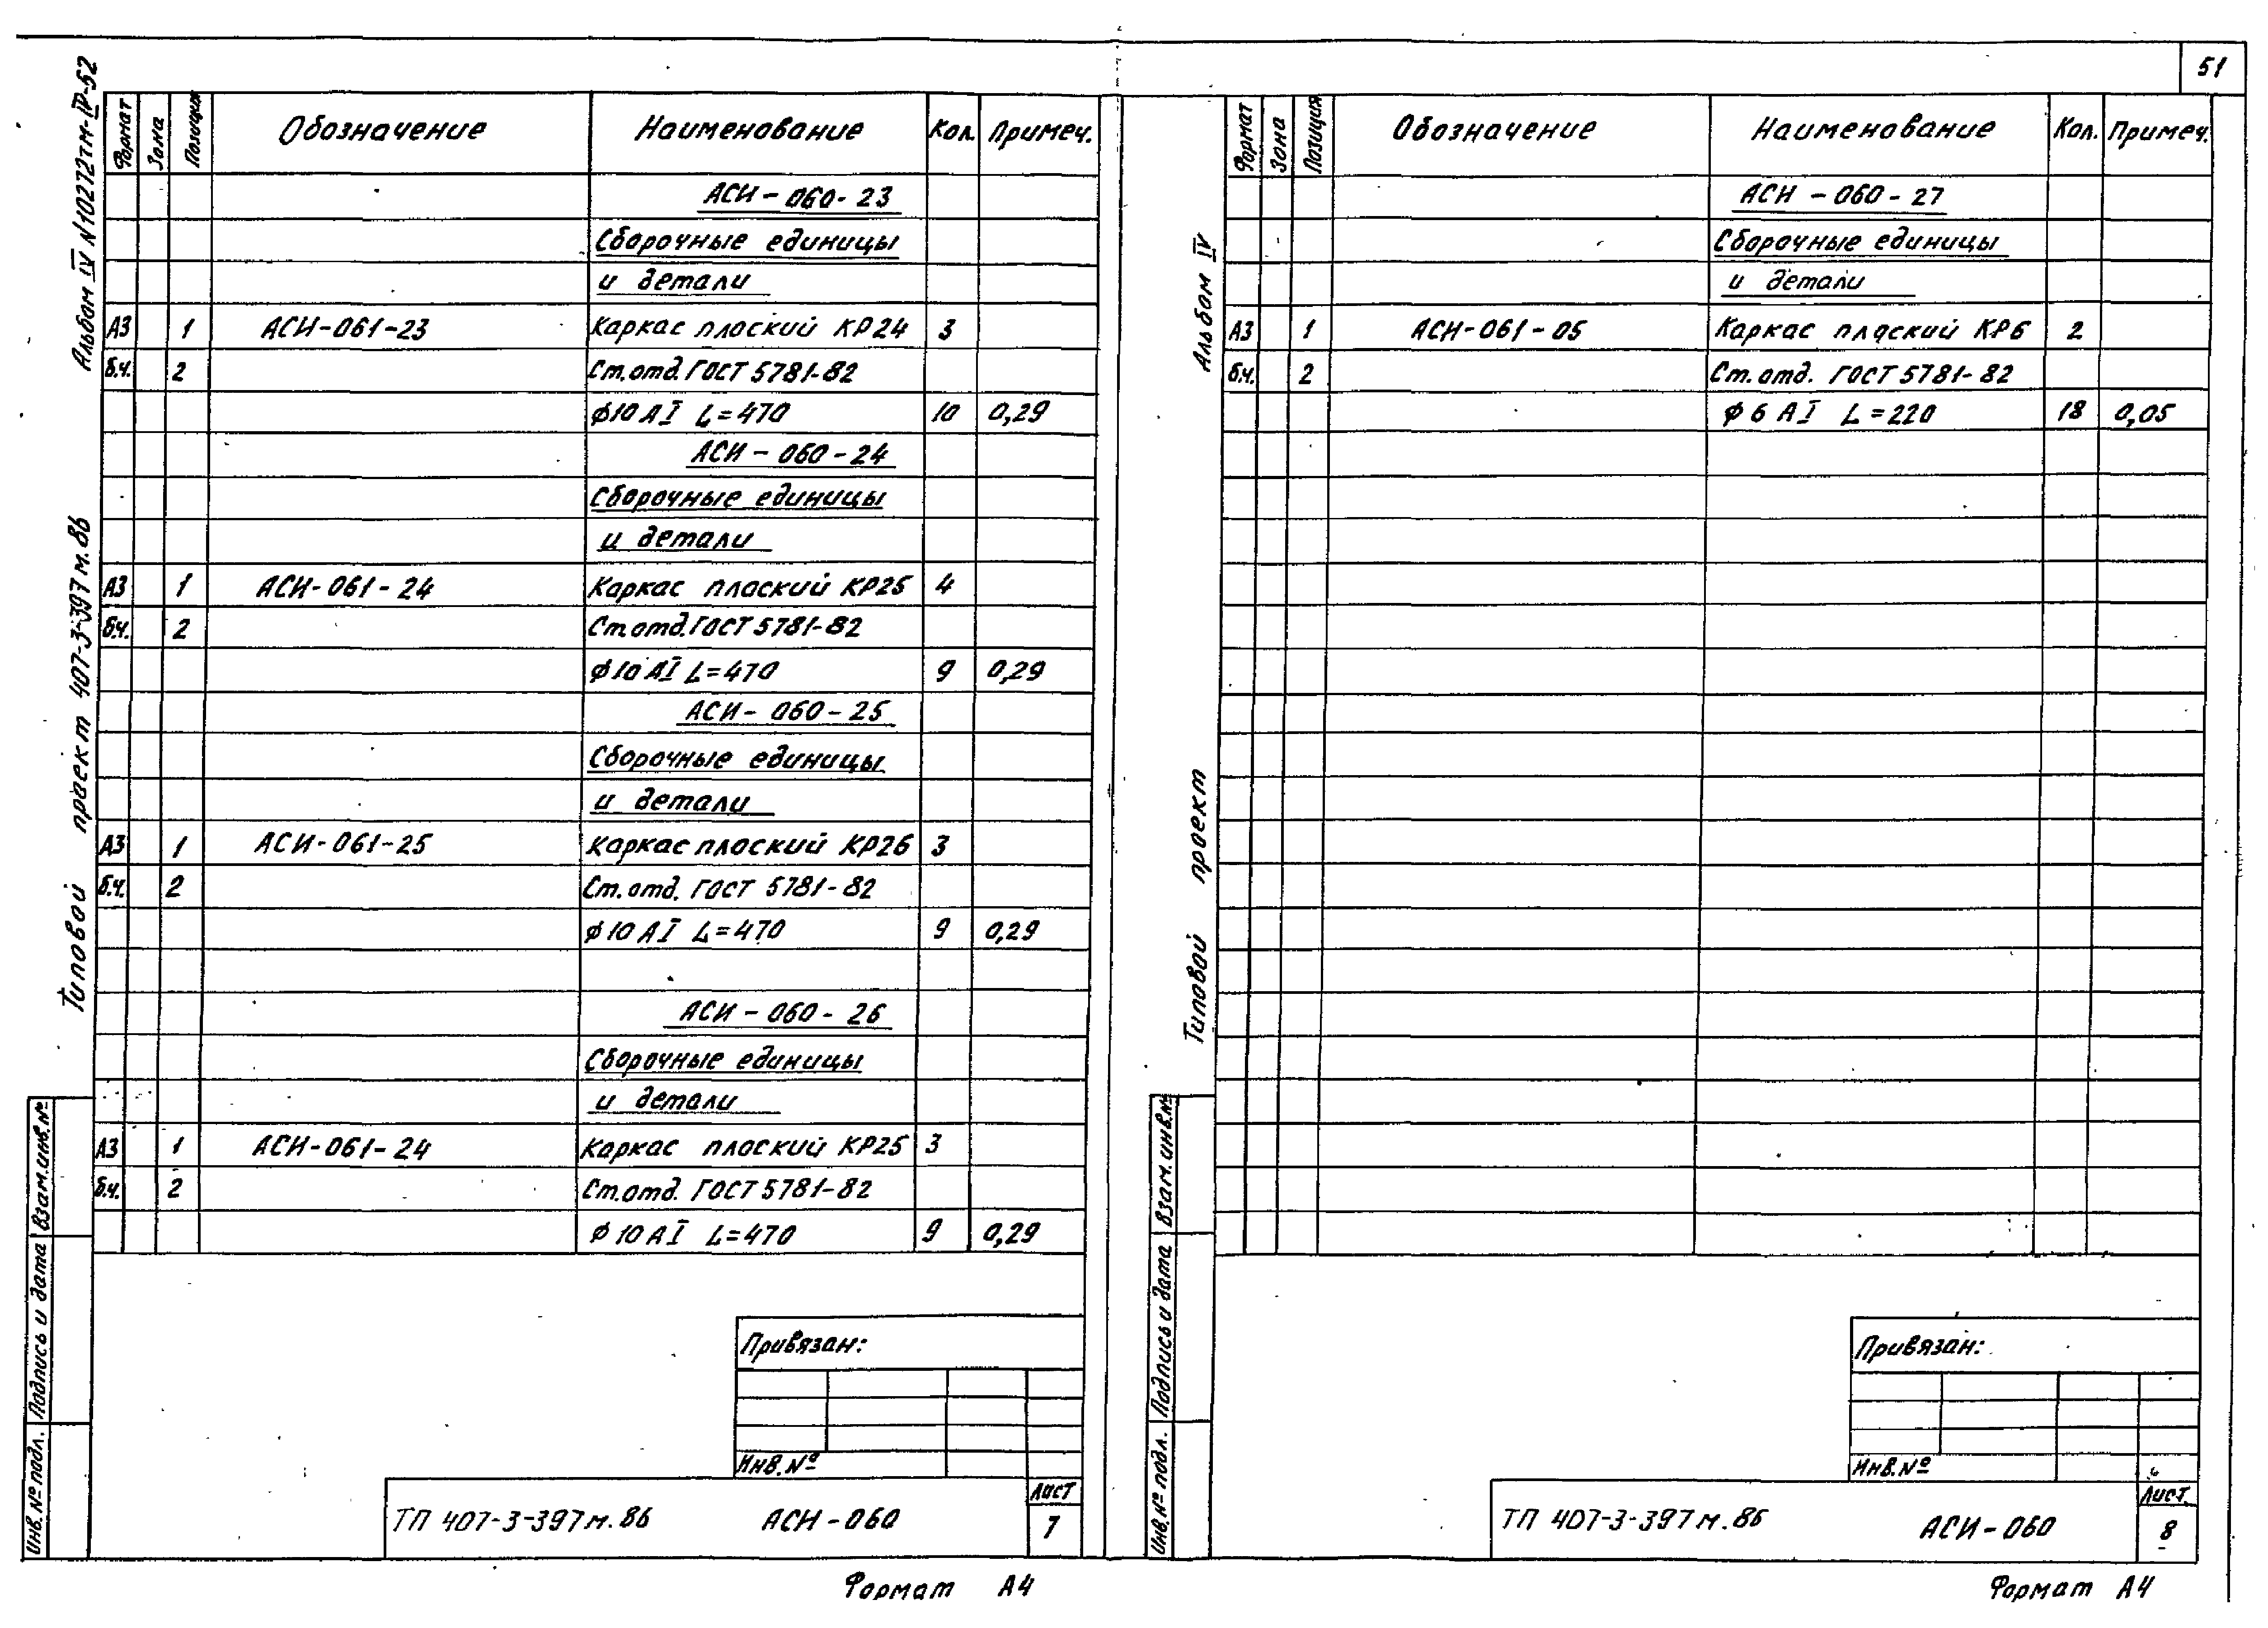 51
Альбом IV N10272тм-IV-52
Типовой проект 407-3-397м.86
Формат Зона Позиция Обозначение Наименование Кол. Примеч.
АСИ-060-23
Сборочные единицы
и детали
А3 1 АСИ-061-23 Каркас плоский КР24 3
б.ч. 2 Ст.отд.ГОСТ 5781-82
ф10 АI L=470 10 0,29
АСИ-060-24
Сборочные единицы
и детали
А3 1 АСИ-061-24 Каркас плоский КР25 4
б.ч. 2 Ст.отд.ГОСТ 5781-82
ф10 АI L=470 9 0,29
АСИ-060-25
Сборочные единицы
и детали
А3 1 АСИ-061-25 Каркас плоский КР26 3
б.ч. 2 Ст.отд. ГОСТ 5781-82
ф10 АI L=470 9 0,29
АСИ-060-26
Сборочные единицы
и детали
А3 1 АСИ-061-24 Каркас плоский КР25 3
б.ч. 2 Ст.отд. ГОСТ 5781-82
ф10 АI L=470 9 0,29
Инв.№ подл. Подпись и дата Взам.инв.№
Привязан:
Инв.№
ТП 407-3-397м.86 АСИ-060
Лист
7
Формат А4
Альбом IV
Типовой проект
Формат Зона Позиция Обозначение Наименование Кол. Примеч.
АСИ-060-27
Сборочные единицы
и детали
А3 1 АСИ-061-05 Каркас плоский КР6 2
б.ч. 2 Ст.отд. ГОСТ 5781-82
ф6 АI L=220 18 0,05
Инв.№ подл. Подпись и дата Взам.инв.№
Привязан:
Инв.№
ТП 407-3-397м.86 АСИ-060
Лист
8
Формат А4